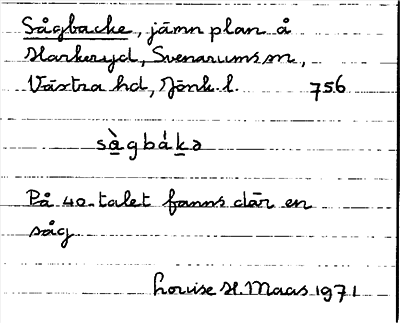 Sågbacke, jämn plan å
Harkeryd, Svenarums sn,
Västra hd, Jönk. l. 756
sàgbákə
På 40-talet fanns där en
såg
Louise H. Maas 1971